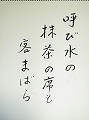 呼び水の
抹茶の席も
客まばら